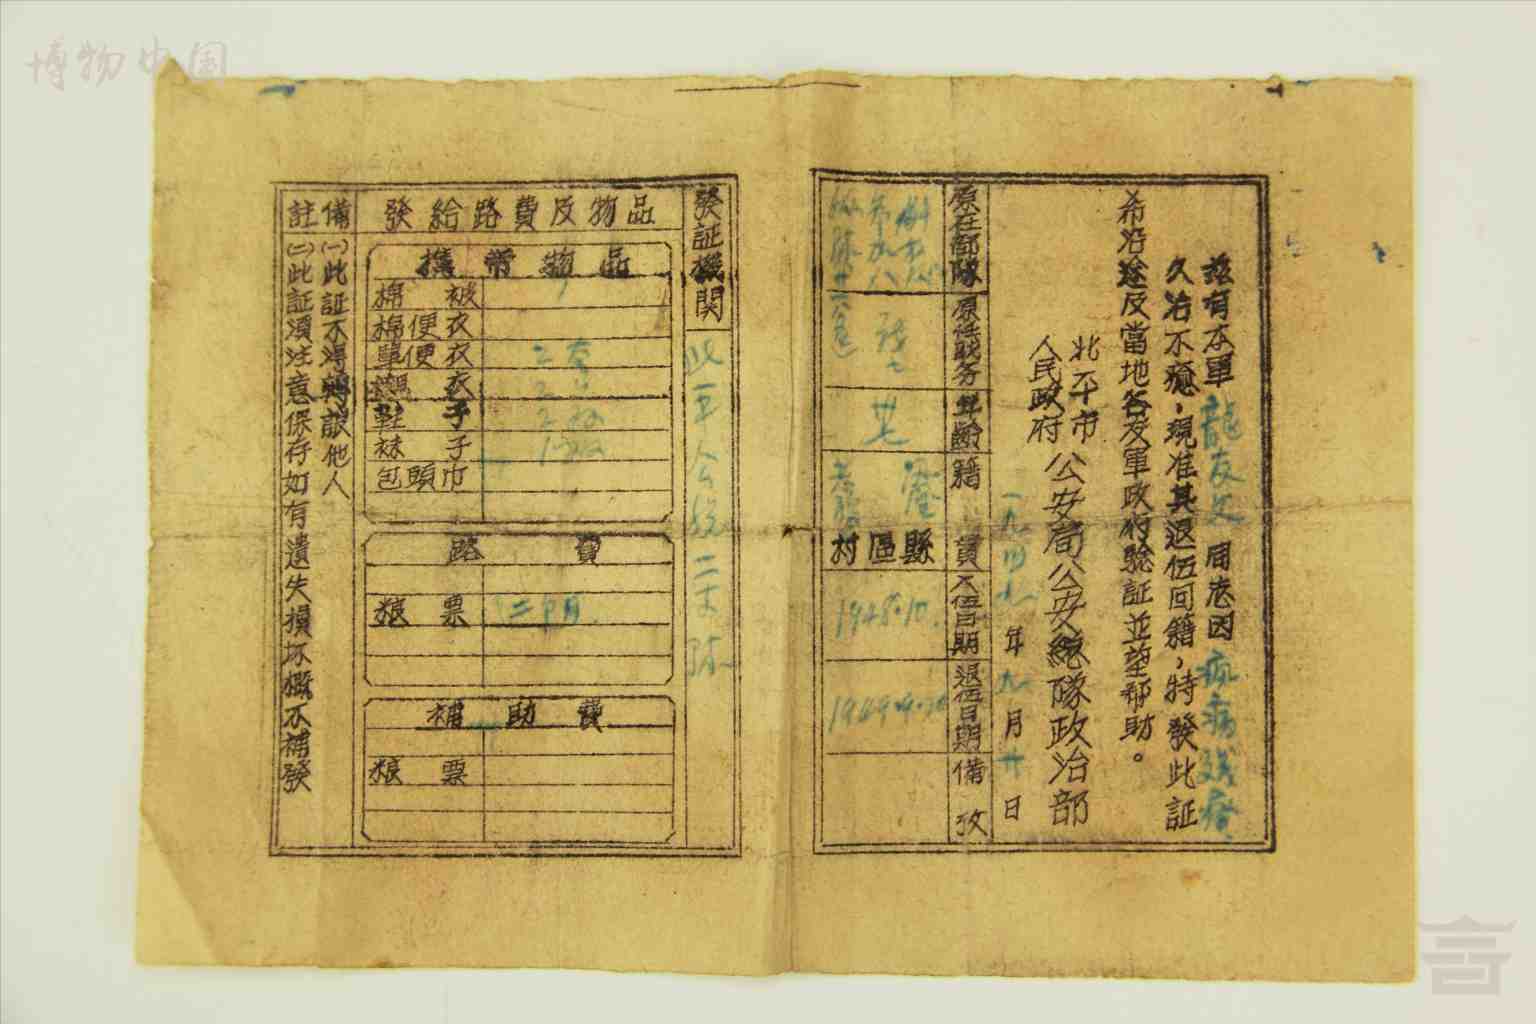 博物中国
茲有本軍龍友文同志因病殘廢
久治不癒,現准其退伍回籍,特發此証
希沿途及當地各友軍政府驗証並望幫助。
北平市
人民政府
公安局公安總隊政治部
一九四九年九月廿日
原在部隊
原任职务
年齡
籍貫
入伍日期
退伍日期
備攷
戰士
廿七
縣區村
1948.10.
發証機關
發給路費及物品
攜帶物品
棉被
棉便衣
單便衣 二套
襯衣
鞋子
袜子
包頭巾
路費
粮票 二甲月
補助費
粮票
備註
(一)此証不得轉讓他人
(二)此証須注意保存如有遺失損坏概不補發